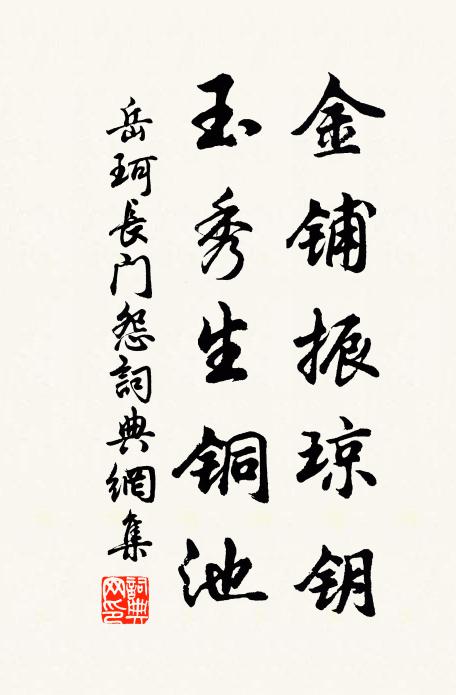 金铺振琼钥
玉秀生铜池
岳珂長门怨詞典網集
詞典网印